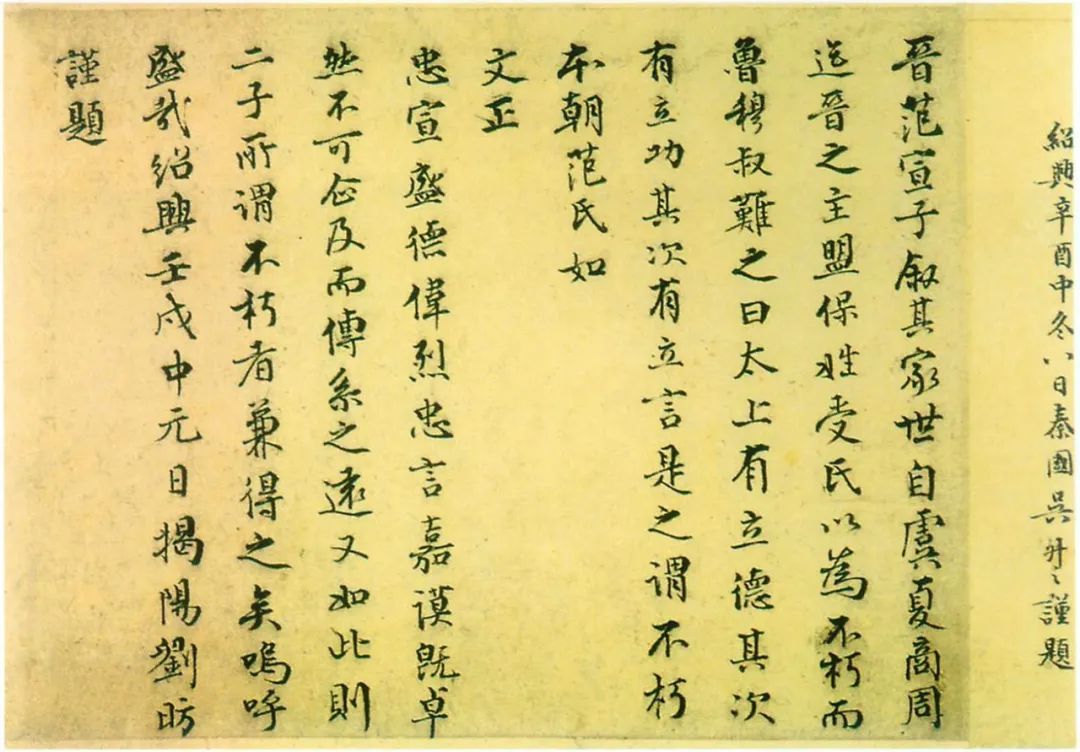 紹興辛酉中冬八日秦國吳升之謹題
晉范宣子叙其家世自虞夏商周
迄晉之主盟保姓受氏以為不朽而
魯穆叔難之曰太上有立德其次
有立功其次有立言是之謂不朽
本朝范氏如
文正
忠宣盛德偉烈忠言嘉謨既卓
然不可企及而傳系之遠又如此則
二子所謂不朽者兼得之矣嗚呼
盛哉紹興壬戌中元日揭陽劉昉
謹題